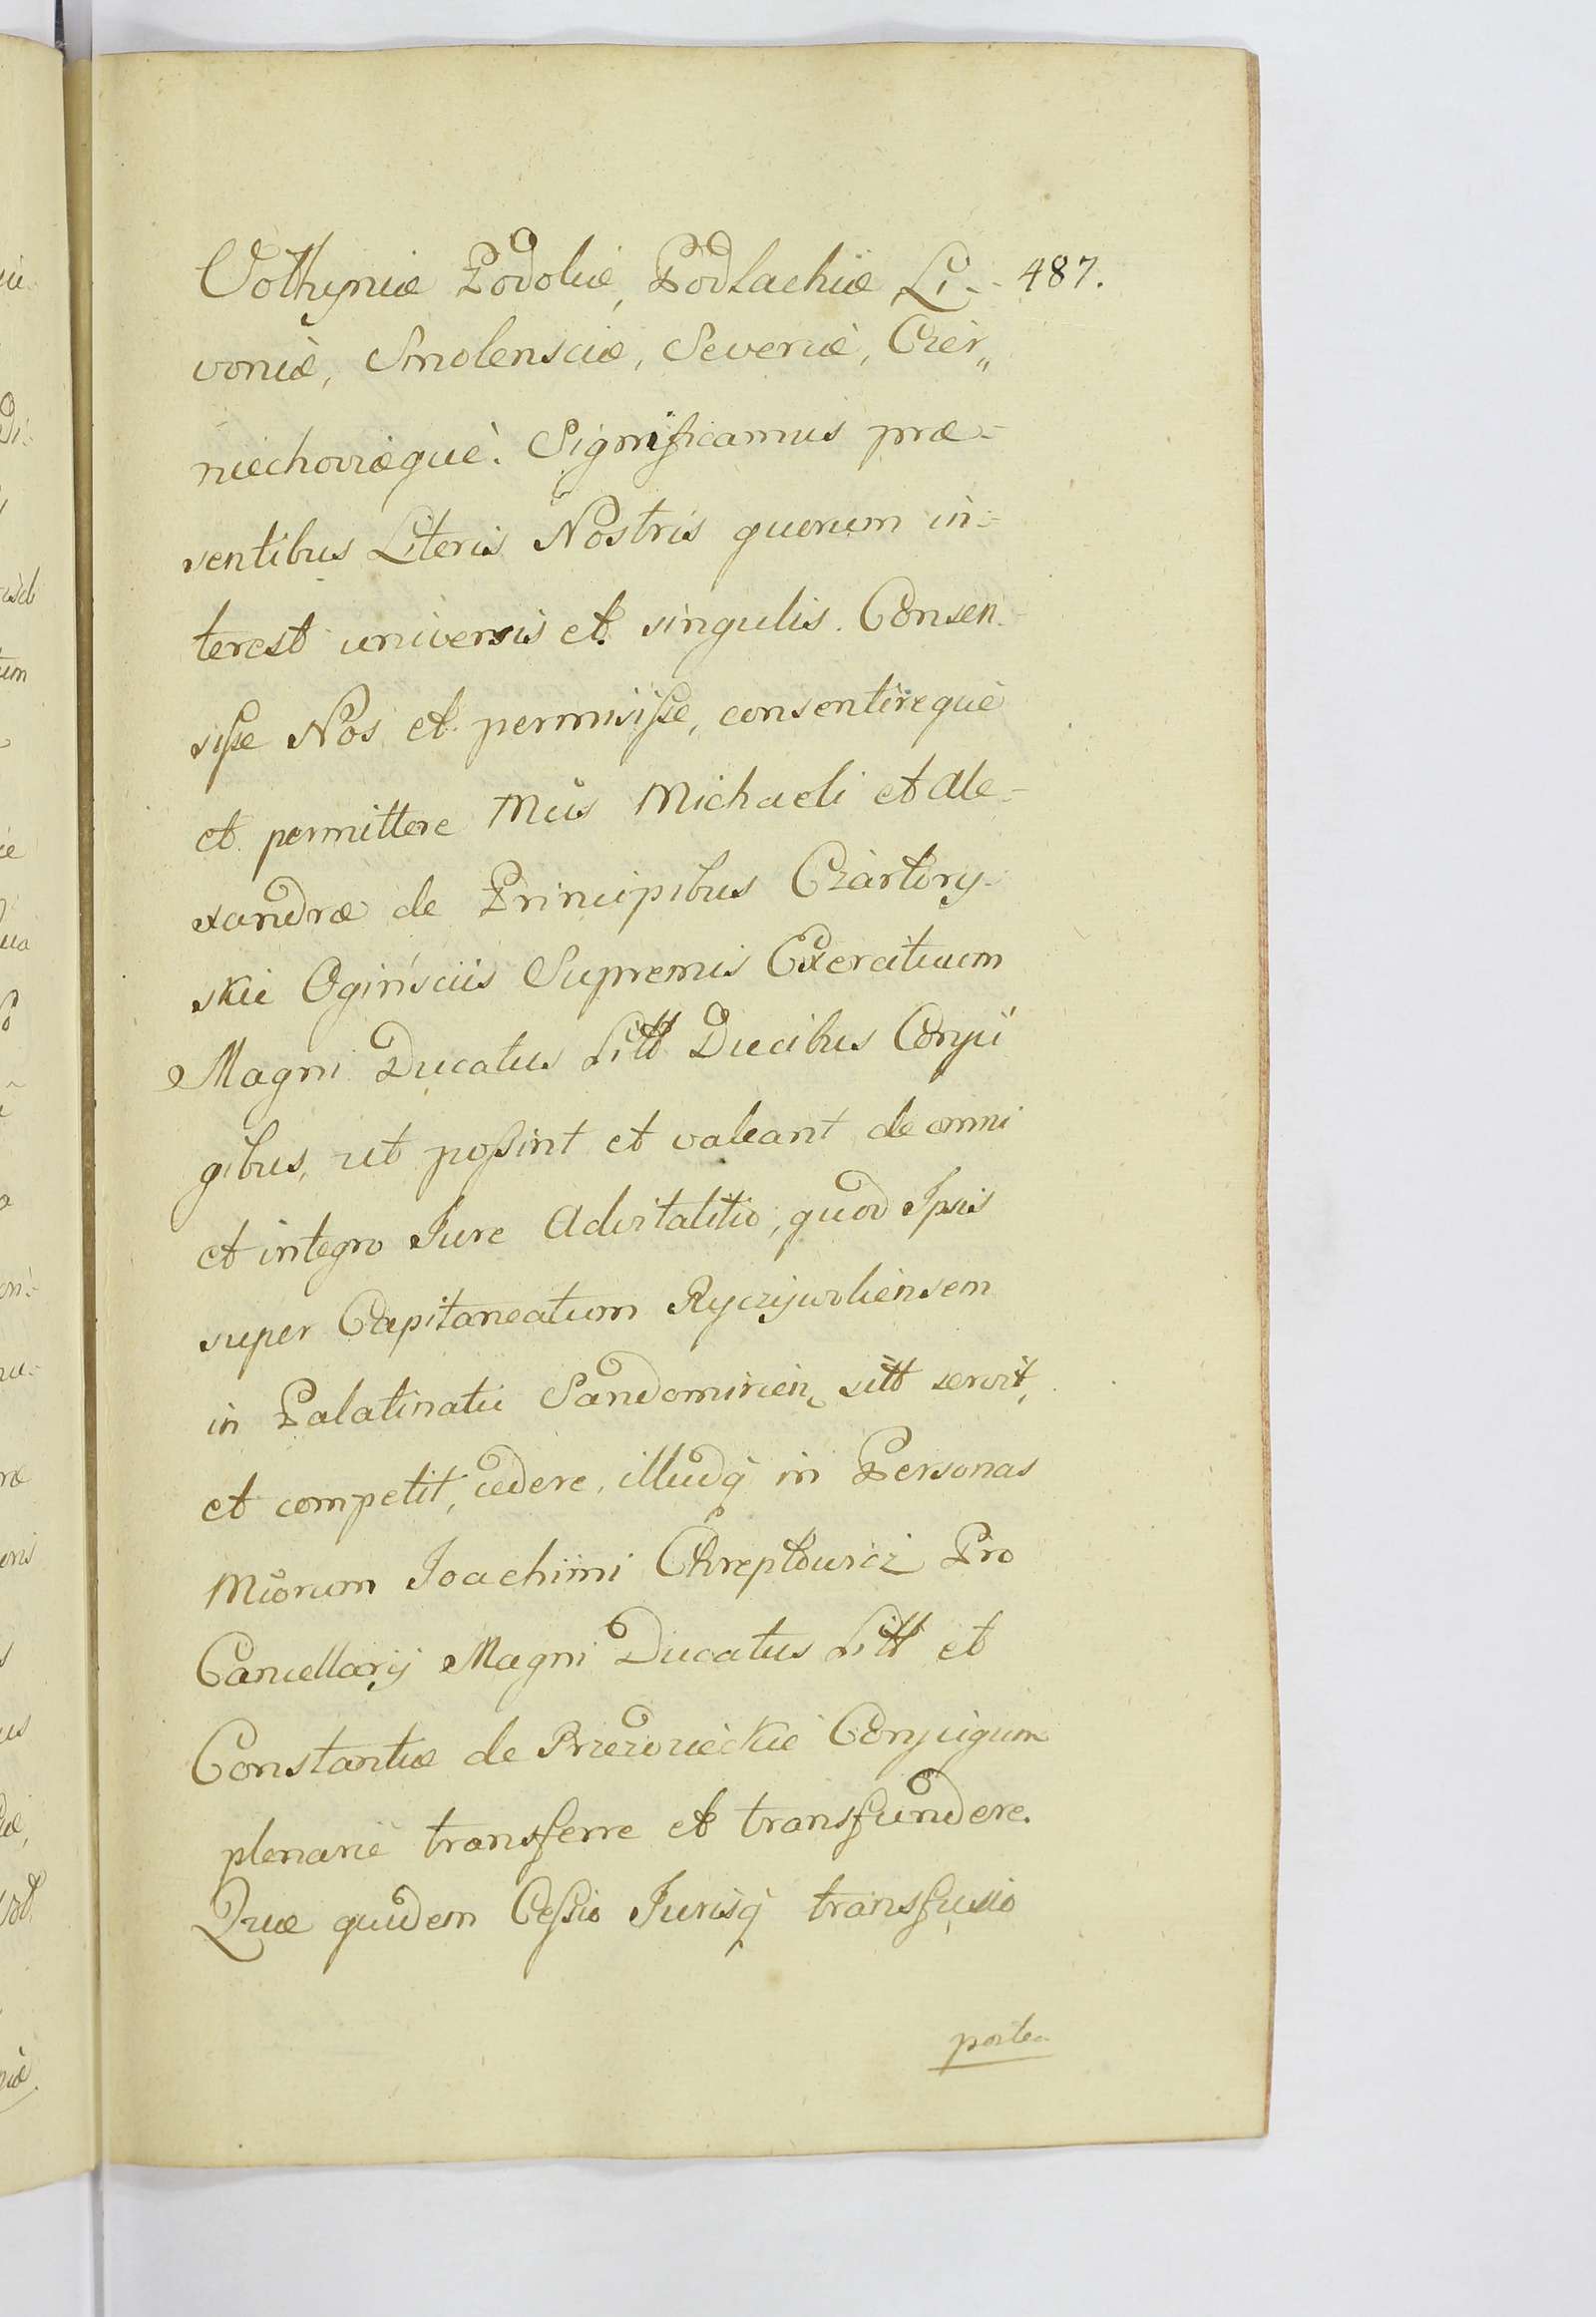 Volhyniæ Podoliæ, Podlachiæ Li- 487.
voniæ, Smolensciæ, Severiæ, Czer„
niechoviæque. Significamus præ-
sentibus Literis Nostris quorum in-
terest universis et singulis. Consen-
siſse Nos et permisiſse, consentireque
et permittere Mcis Michaeli et Ale-
xandræ de Principibus Czartory-
skie Ogińsciis Supremis Exercituum
Magni Ducatus Litt Ducibus Conju
gibus, ut poſsint et valeant de omni
et integro Jure Advitalitio, quod Ipsis
super Capitaneatum Ryczywoliensem
in Palatinatu Sandomirien, sitt servit,
et competit, cedere, illudq in Personas
Mcorum Joachimi Chreptowicz Pro
Cancellarij Magni Ducatus Litt et
Constantiæ de Przezdzieckie Conjugum
plenarie transferre et transfundere.
Quæ quidem Ceſsio Jurisq transfusio
postea